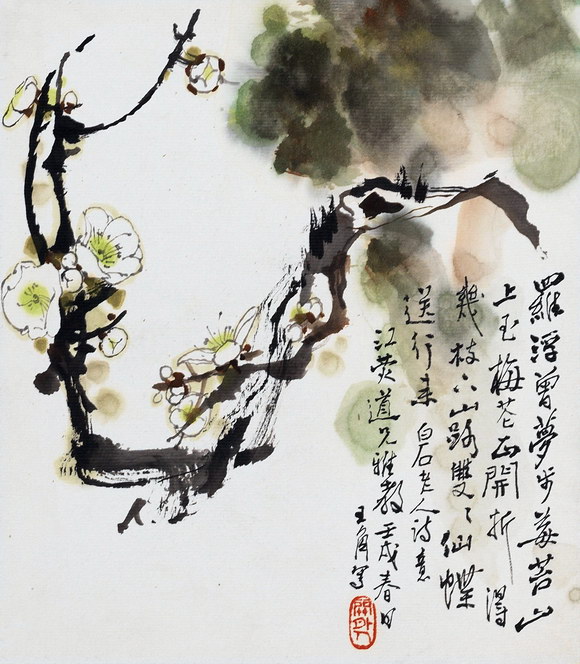 羅浮曾夢步莓苔山
上玉梅花正開折得
幾枝下山路雙々仙蝶
送行来 白石老人詩意
江荧道兄雅教壬戌春日
王角寫